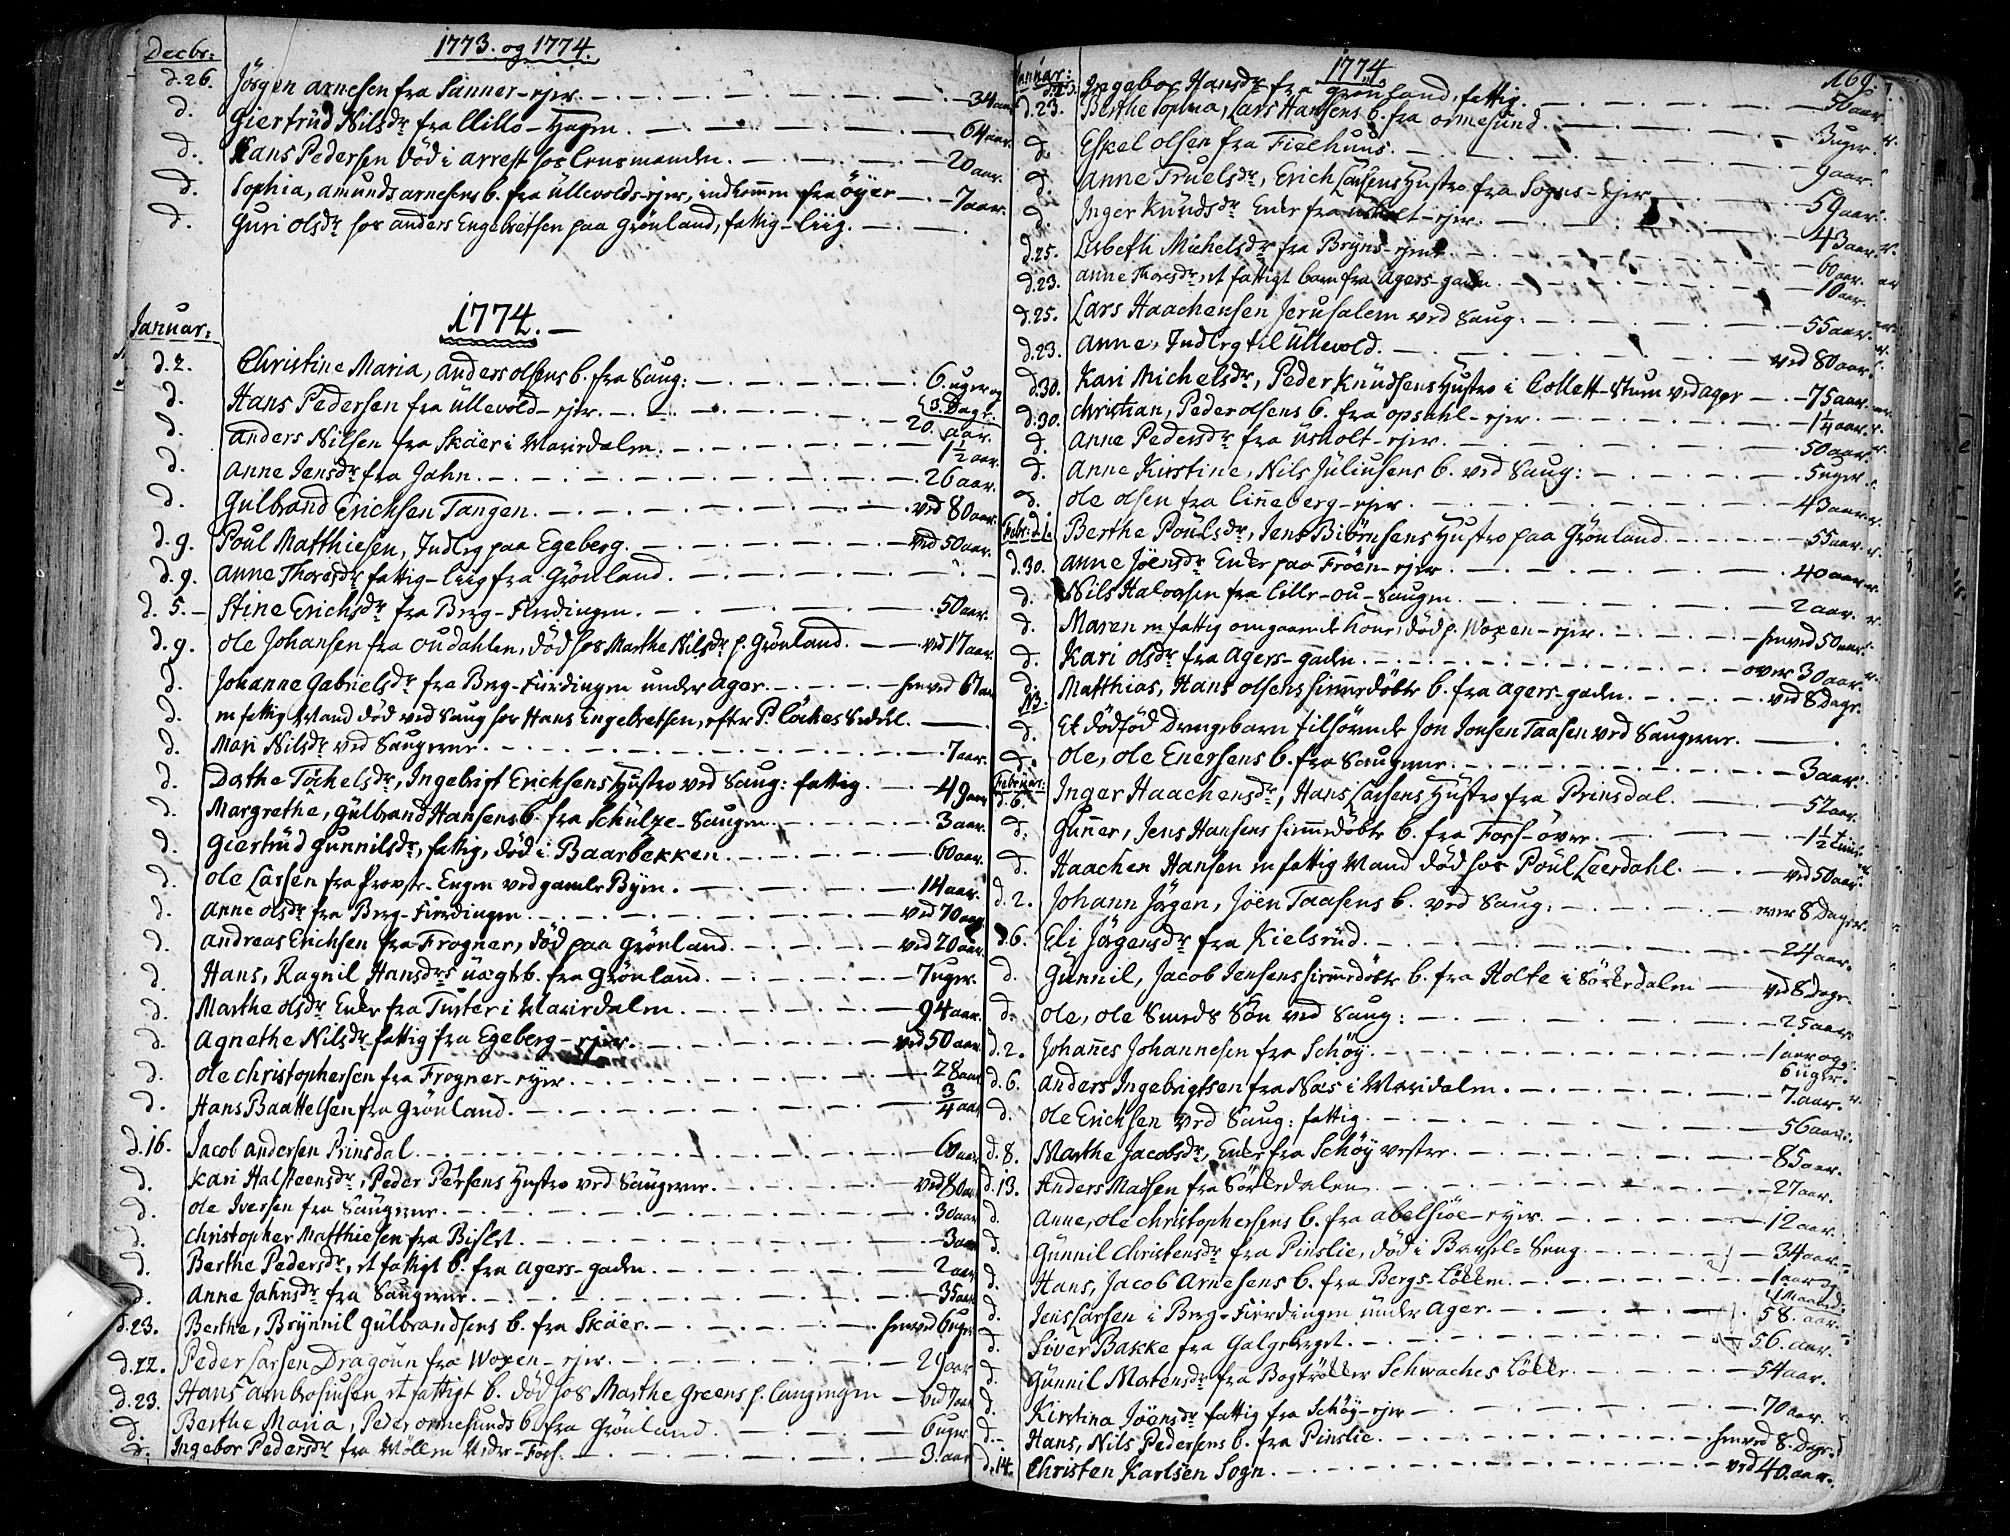 1773. og 1774.
Decbr:
d. 26. Jörgen Arnesen fra Sanner-ejer. 34 aar.
d. Giertrüd Nilsdr fra Lillo-Hagen. 64 aar.
d. Hans Pedersen död i arrest hos Lensmanden. 20 aar.
d. Sophia, Amunds Arnesens b. fra Üllevolds-ejer, indkommen fra Öyer 7 aar.
d. Guri Olsdr hos Anders Engebretsen paa Grönland, fattig-Liig.
1774.
Januar:
d. 2. Christine Maria, Anders Olsens b. fra Saug: 6. uger og
3. Dage.
d. Hans Pedersen fra Üllevold-ejer. 20. aar.
d. Anders Nilsen fra Skáer i Marirdalen. 1½ aar.
d. Anne Jensdr fra Jahn. 26 aar.
d. Gulbrand Erichsen Tangen. ved 80 aar.
d. 9. Poul Matthiesen, Indleg paa Egeberg. ved 50 aar.
d. 9. Anne Thoresdr fattig-liig fra Grönland.
d. 5. Stine Erichsdr fra Berg-Fierdingen. 50 aar.
d. 9. Ole Johansen fra Oudahlen, död hos Marthe Nilsdr p. Grönland. ved 17 aar.
d. Johanne Gabrielsdr fra Berg-Fierdingen under Ager. henved 61 aar
d. en fattig Mand död ved Saug hos Hans Engebretsen, efter P. Lökes Seddel.
d. Mari Nilsdr ved Saugerne. 7 aar.
d. Dorthe Tóchelsdr, Ingebrigt Erichsens Hustro ved Saug: fattig. 49 aar
d. Margrethe, Gülbrand Hansens b. fra Schülze-Saugen. 3 aar.
d. Giertrüd Gunnilsdr, fattig, död i Baarbekken. 60 aar.
d. Ole Larsen fra Provste-Engen ved gamle Byen. 14 aar.
d. Anne Olsdr fra Berg-Fierdingen. ved 70 aar
d. Andreas Erichsen fra Frogner, död paa Grönland. ved 20 aar.
d. Hans, Ragnil Hansdrs üægte b. fra Grönland. 7 uger.
d. Marthe Olsdr Enke fra Turter i Marirdalen. 94 aar.
d. Agnethe Nilsdr fattig fra Egeberg-ejer. ved 50 aar
d. Ole Christophersen fra Frogner-ejer. 28 aar
d. Hans Baattelsen fra Grönland. ¾ aar
d. 16. Jacob Andersen Prinsdal. 60 aar
d. Kari Halsteensdr, Peder Persens Hustro ved Saugerne. ved 80 aar
d. Ole Iversen fra Saugerne. 30 aar
d. Christopher Matthiesen fra Bislet. 3 aar
d. Berthe Pedersdr, et fattigt b. fra Agers-gaden. 2 aar
d. Anne Jahnsdr fra Saugerne. 35 aar
d. 23. Berthe, Brynnil Gülbrandsens b. fra Skáer. henved 6 uger
d. 22. Peder Larsen Dragoun fra Woxen-ejer. 29 aar
d. 23. Hans Ambrosiusen, et fattigt b. död hos Marthe Greens p. Langengen ved 7 aar
d. Berthe Maria, Peder Ormesunds b. fra Grönland. 6 uger
d. Ingebor Pedersdr fra Möllen Nedre-Foss. 3. aar
1774
169.
Januar:
d. 23. Ingebor Hansdr fra Grönland, fattig. 50 aar
d. 23. Berthe Sophia, Lars Hansens b. fra Ormesund. 3 uger.
d. Eskel Olsen fra Fielhuus. 9 aar.
d. Anne Truelsdr, Erich Larsens Hustro fra Sogns-Ejer 59 aar.
d. Inger Knüdsdr Enke fra Üsholt-ejer. 43 aar.
d. 25. Lisbeth Michelsdr fra Bryns-ejer. 60 aar.
d. 23. Anne Thoresdr, et fattigt barn fra Agers-gaden. 10 aar.
d. 25. Lars Haachensen Jerusalem ved Saug: 55 aar.
d. 23. Anne, Indleg til Üllevold. ved 80 aar.
d. 30. Kari Michelsdr, Peder Knüdsens Hustro i Collett-Stuen ved Ager 75 aar.
d. 30. Christian, Peder Olsens b. fra Opsahl-ejer. 1¼ aar.
d. Anne Pedersdr fra Üsholt-ejer. 50 aar.
d. Anne Kirstine, Nils Juliusens b. ved Saug: 5 uger.
d. Ole Olsen fra Linneberg-ejer. 43 aar.
Febr: d. 1. Berthe Poulsdr, Jens Biörnsens Hustro paa Grönland. 55 aar.
d. 30. Anne Jöensdr Enke paa Fröen-ejer. 40 aar.
d. Nils Halvorsen fra Lille-Ou-Saugen 2 aar.
d. Maren en fattig omgaaende Kone, död p. Woxen-ejer. henved 50 aar.
d. Kari Olsdr fra Agers-gaden. over 30 aar.
d. Matthias, Hans Olsens hiemmedöbte b. fra Agers-gaden. ved 8 Dage.
NB:
d. Et dödföd Drengebarn tilhörende Jon Jonsen Taasen ved Saugerne.
d. Ole, Ole Enersens b. fra Saugerne. 3 aar.
Februar:
d. 6. Inger Haachensdr, Hans Larsens Hustro fra Prinsdal. 52 aar.
d. Gunner, Jens Hansens hiemmedöbte b. fra Foss-övre. 1½ Time
d. Haachen Hansen en fattig Mand död hos Poül Leerdahl. ved 50 aar.
d. 2. Johann Jörgen, Jöen Taasens b. ved Saug: over 8 Dage.
d. 6. Eli Jörgensdr fra Kielsrüd. 24 aar.
d. Günnil, Jacob Jensens hiemmedöbte b. fra Holte i Sörkedalen ved 8 Dage.
d. Ole, Ole Smeds Sön ved Saug: 25 aar.
d. 2. Johannes Johannesen fra Schöy. 1 aar og
6 uger.
d. 6. Anders Ingebrigtsen fra Næs i Maridalen. 7. aar.
d. Ole Erichsen ved Saug: fattig 56 aar.
d. 8. Marthe Jacobsdr, Enke fra Schöy vestre. 85 aar.
d. 13. Anders Madsen fra Sörkedalen. 27 aar.
d. Anne, Ole Christophersens b. fra Abelsiöe-ejer. 12 aar.
d. Günnil Christensdr fra Pinslie, död i Barsel-Seng. 34 aar.
d. Hans, Jacob Arnesens b. fra Bergs-Lökken. 1 aar og
1 Maaned.
d. Jens Larsen i Berg-Fierdingen under Ager. 58. aar.
d. Siver Bakke fra Galgeberget. 56. aar.
d. Günnil Mortensdr fra Bogtrökker Schwaches Lökke. 54 aar.
d. Kirstina Jöensdr fattig fra Schöy-ejer 70 aar.
d. Hans, Nils Pedersens b. fra Pinslie. henved 8. Dage.
d. 14. Christen Karlsen Sogn. ved 40. aar.